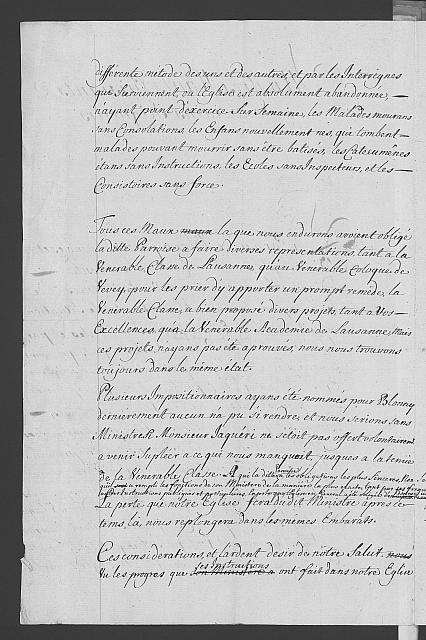 differente métode des uns et des autres, et par les Interrègnes
que Surviennent, ou l'Eglise est absolument abandonnée,
n'ayant point d'exercice Sur Semaine, les Malades mourans
sans Consolations, les Enfans nouvellement nes, qui tombent
malades pouvant mourir sans être batisés, les Catecumênes
étans sans Instructions, les Ecoles sans Inspecteurs, et les
Consistoires sans force.
Tous ces Maux maux la que nous endurons avoient obligé
la ditte Parroise a faire diverses représentations, tant a la
Venerable Classe de Lausanne, qu'au Venerable Coloque de
Vevey, pour les prier d'y apporter un prompt remède, la
Venerable Classe, a bien proposé divers projets, tant a Vos
Excellences, qu'a la Venerable Academie de Lausanne, Mais
ces projets, n'ayans pas été aprouvés, nous nous trouvons
toujours dans le même état.
Plusieurs Impositionnaires ayans été nommés pour Blonay
dernierement aucun n'a pu si rendre, et nous serions sans
Ministre si Monsieur Jaquéri ne s'étoit pas offert volontairement
a venir Supléer a ce qui nous manquoit, jusques a la tenüe
de la Venerable Classe. a qui la ditte Paroisse les obligations les plus Sinceres,
a rempli les fonctions de son Ministere de la manière la plus exacte, tant par ses
Instructions publiques et particulieres
La perte que notre Eglise feroit du dit Ministre après ce
tems la, nous replongera dans les mêmes Embaras.
Ces considerations, et l'ardent desir de notre Salut, nous
Vu les progres que son Ministere a ses instructions ont fait dans notre Eglise